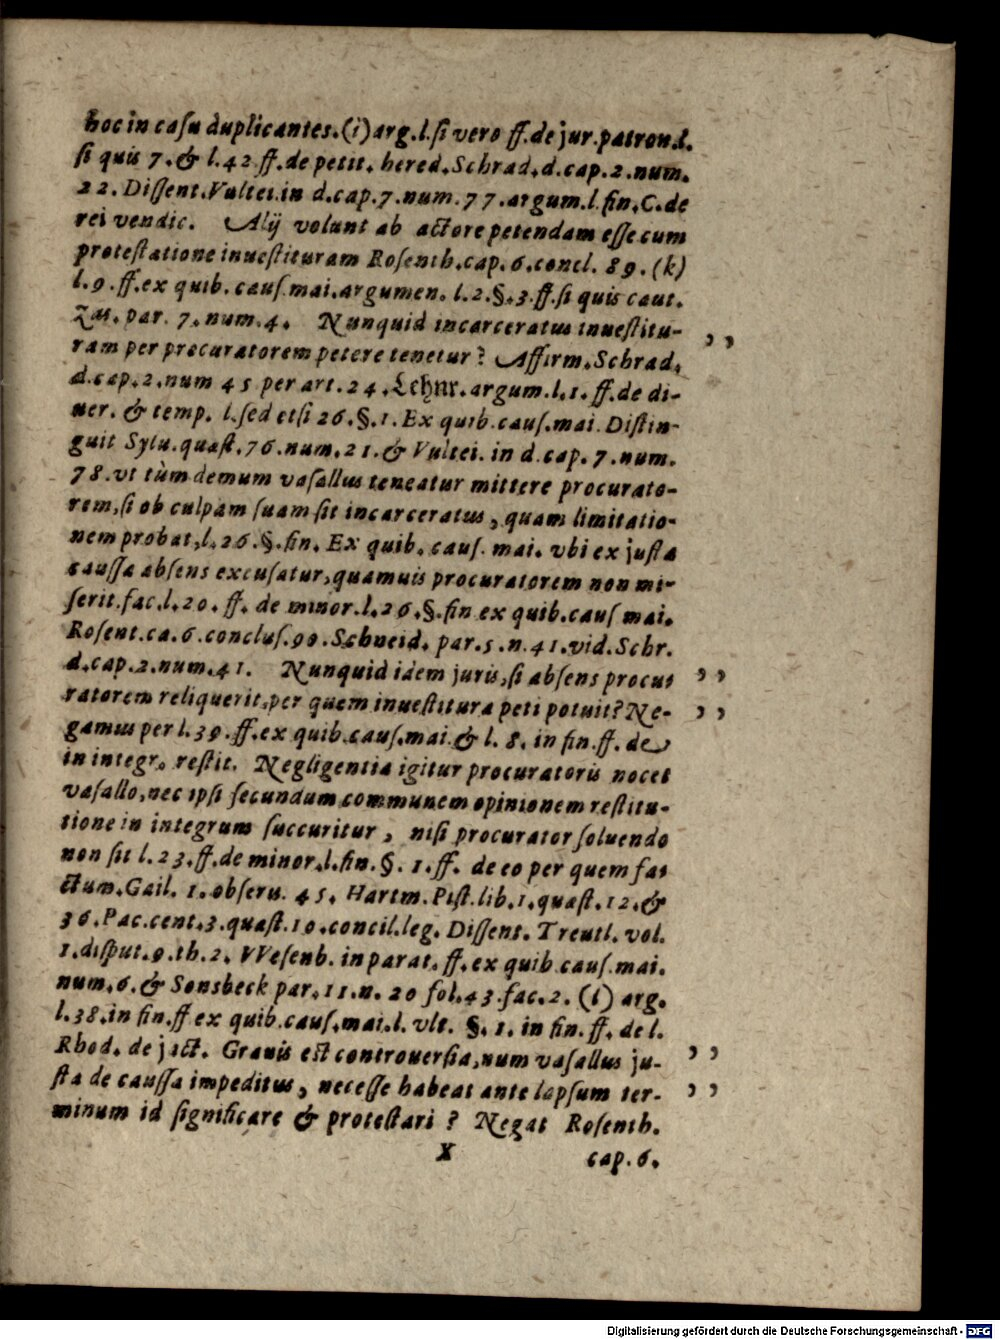 hoc in caſu duplicantes.(i) arg.l.ſi vero ff.de jur.patron.l.
ſi quis 7.& l.42 ff.de petit. hered.Schrad.d.cap.2.num.
22. Diſſent.Vultei.in d.cap.7.num.77.argum.l.fin.C.de
rei vendic. Alij volunt ab actore petendam eſſe cum
proteſtatione inueſtituram Roſenth.cap.6.concl. 89.(k)
l.9.ff.ex quib.cauſ.mai.argumen. l.2.§.3.ff.ſi quis caut.
Zas. par. 7.num.4. Nunquid incarceratus inueſtitu-
ram per procuratorem petere tenetur? Affirm.Schrad. ,,
d.cap.2.num 45 per art.24.Lehnr.argum.l.1.ff.de di-
uer. & temp. l.ſed etſi 26.§.1.Ex quib.cauſ.mai. Diſtin-
guit Sylu.quaſt.76.num.21.& Vultei. in d.cap.7.num.
78.vt tùm demum vaſallus teneatur mittere procurato-
rem,ſi ob culpam ſuam ſit incarceratus, quam limitatio-
nem probat,l.26.§.fin. Ex quib. cauſ. mai. vbi ex juſta
cauſſa abſens excuſatur,quamuis procuratorem non mi-
ſerit.fac.l.20.ff. de minor.l.26.§.fin ex quib.cauſ mai.
Roſent.ca.6.concluſ.90.Schneid. par.5.n.41.vid.Schr.
d.cap.2.num.41. Nunquid idem juris,ſi abſens procu- ,,
ratorem reliquerit,per quem inueſtitura peti potuit?Ne- ,,
gamus per l.39.ff.ex quib.cauſ.mai.& l. 8. in fin.ff. de
in integr. reſtit. Negligentia igitur procuratoris nocet
vaſallo,nec ipſi ſecundum communem opinionem reſtitu-
tione in integrum ſuccuritur, niſi procurator ſoluendo
non ſit l.23.ff.de minor.l.fin.§. 1.ff. de eo per quem fa-
ctum.Gail. 1.obſeru. 45. Hartm.Piſt.lib.1.quaſt.12.&
36.Pac.cent.3.quaſt.10.concil.leg. Diſſent. Treutl. vol.
1.diſput.9.th.2. VVeſenb. in parat.ff.ex quib cauſ.mai.
num.6.& Sonsbeck par.11.n. 20 fol.43.fac.2. (l) arg.
l.38.in fin.ff ex quib.cauſ.mai.l. vlt. §.1. in fin.ff. de l.
Rhod. de jact. Grauis eſt controuerſia,num vaſallus ju- ,,
ſta de cauſſa impeditus, neceſſe habeat ante lapſum ter- ,,
minum id ſignificare & proteſtari ? Negat Roſenth.
X cap.6.
Digitalisierung gefördert durch die Deutsche Forschungsgemeinschaft - DFG